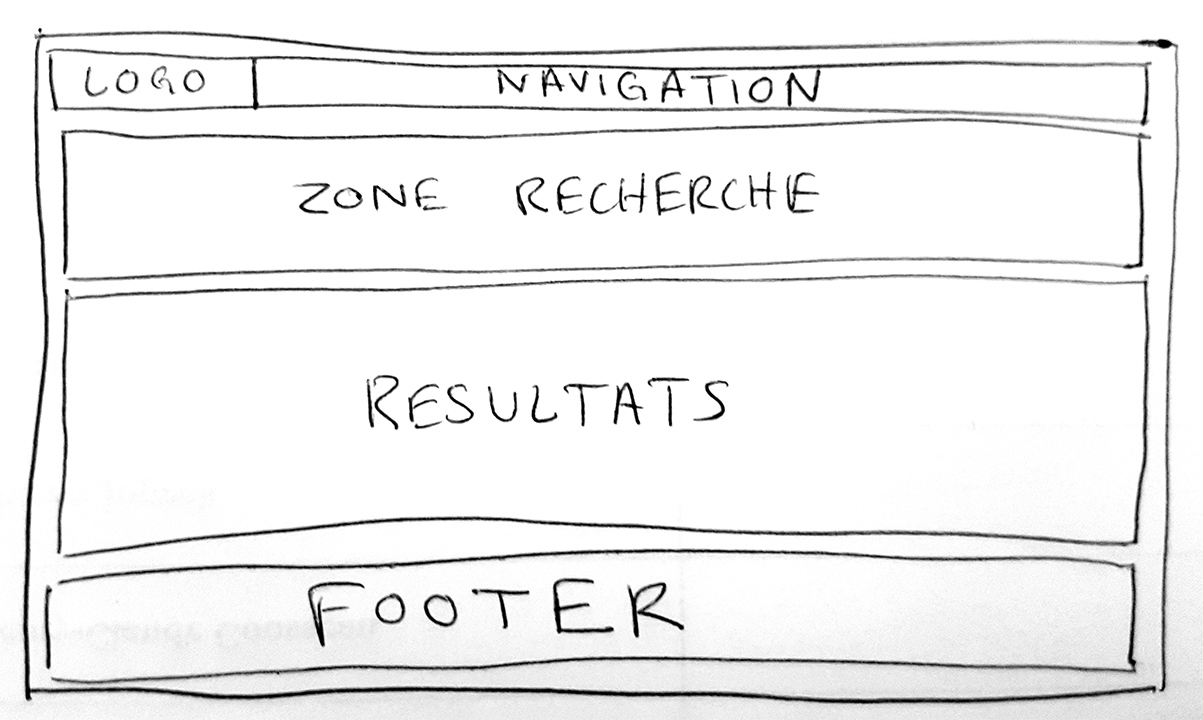 LOGO
NAVIGATION
ZONE RECHERCHE
RESULTATS
FOOTER